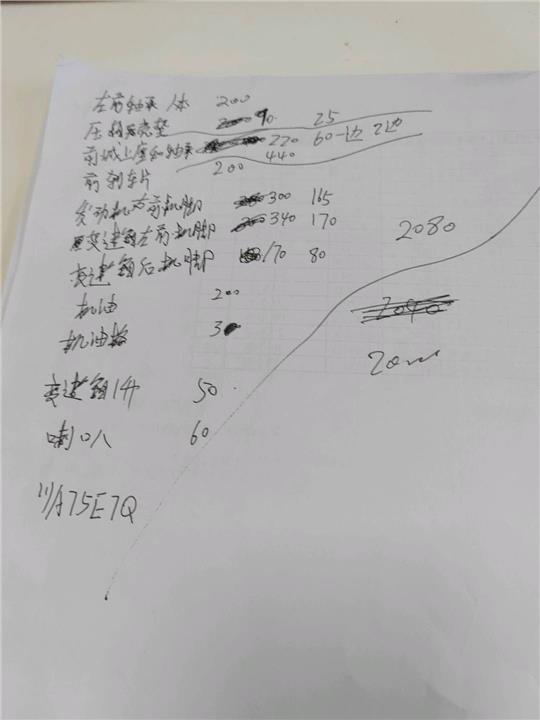 左前轴承 人体 200
压 90 25
前减上座和轴承 220 60一边 2边
440
前刹车片 200
发动机右前机脚 300 165
变速箱左前机脚 340 170
变速箱后机脚 170 80
2080
机油 200
机油格 30
2040
变速箱1个 50
喇叭 60
川A75E7Q